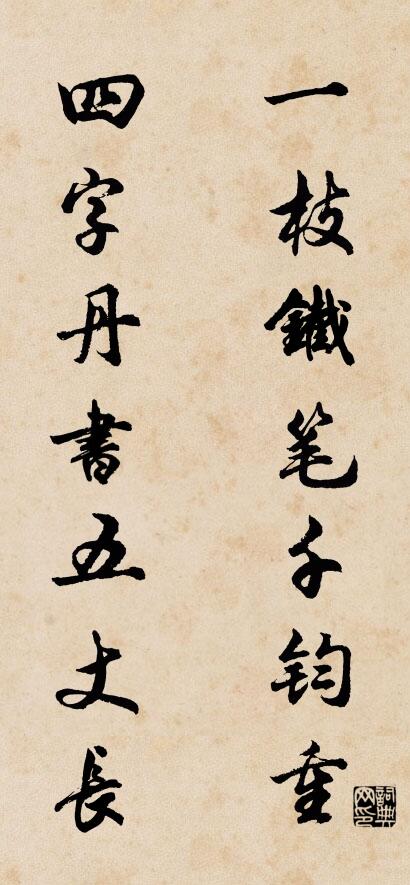 一枝鐵笔千鈞重
四字丹書五丈長
詞典网印